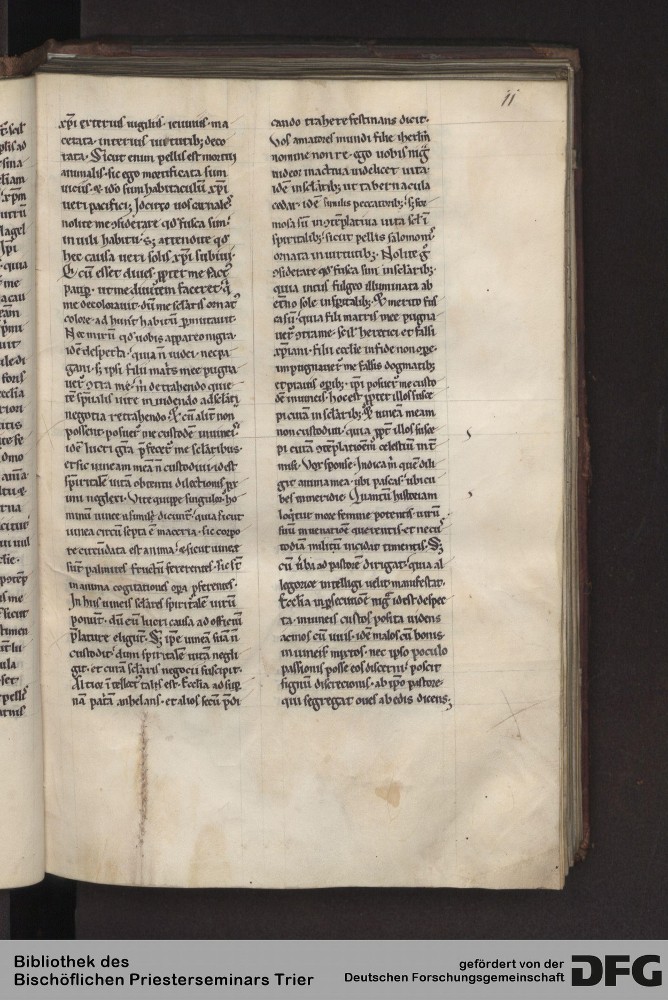 11
xp̄i exterius uigiliis · ieiuniis · ma
cerata · interius uirtutibꝫ deco
rata · Sicut enim pellis est mortui
animalis · sic ego mortificata sum
uiciis · ⁊ ido sum habitaculū xp̄i
ueri pacifici; Idcirco uos carnales
nolite me ꝯsiderare qd̓ fusca sim ·
in uili habitu · sꝫ attendite qd̓
hec causa ueri solis xp̄i subiui ·
Q̇ cū esset diues · ꝓpter me factꝰ
paup · ut me diuitem faceret · q̇
me decolorauit · dū me sclaris ornatꝰ
colore · ad hunc habitū ꝑmutauit ·
Nec mirū qd̓ uobis appareo nigra ·
idē despecta · quia n̄ iudei nec pa
gani · sꝫ ipsi filii matris mee pugna
uerꝰ ꝯtra me · in detrahendo quie
tē spūalis uite inuidendo ad sclaria
negotia retrahendo · Et cū alit̓ non
possent · posuerꝰ me custodē in uineis ·
idē lucri gr̄a p̄fecerꝰ me sclaribus ·
et sic uineam meā n̄ custodiui · id est
spiritalē uitā obtentu dilectionis ꝓx
imi neglexi · Vite quippe singulorꝰ ho
minū uinee assimilē dicunt̓ · quia sicut
uinea circū septa ē maceria · sic corpo
re circūdata est anima · ⁊ sicut in uinea
sunt palmites fructū ferentes · sic st̄
in anima cogitationes opa p̄ferentes ·
In his uineis sclares spiritalē uirū
ponunt̓ · dū eū lucri causa ad officiū
p̄lature eligunt̓ · Sꝫ ip̄e uineā suā n̄
custodit · dum spiritalē uitā negli
git · et curā sclaris negocii suscipit ·
Altior intellectꝰ talis est · Ecclia ad sup̄
nā patriā anhelans · et alios secū p̄di
cando trahere festinans dicit ·
Vos amatores mundi filie iherl̄m
nomine non re · ego uobis nigra
uideor in actiua uidelicet uita ·
idē in sclaribꝫ ut tabernacula
cedar · idē similis peccatoribꝫ · sꝫ for
mosa sū in ꝯtemplatiua uita scil̓ ī
spiritalibꝫ · sicut pellis salomonis
ornata in uirtutibꝫ · Nolite g̓
ꝯsiderare qd̓ fusca sim in sclaribꝫ ·
quia intus fulgeo illuminata ab
et̓no sole in spiritalibꝫ · Et merito fus
ca sū · quia filii matris mee pugna
uerꝰ ꝯtra me · scil̓ heretici et falsi
xp̄iani · filii ecclie in fide non ope ·
impugnauerꝰ me falsis dogmatibꝫ
et prauis opibꝫ · ip̄i posuerꝰ me custo
dē in uineis · hoc est ꝓpter illos susce
pi curā in sclaribꝫ · Et uineā meam
non custodiui · quia ꝓpt̓ illos susce
pi curā ꝯtemplationem celestiū int̓
misi · Vox sponse · Indica m̄ quē dili
git anima mea · ubi pascas · ubi cu
bes in meridie · Quantū hystoriam
loqtur more femine potentis uirū
suū in uenatione querentis · et ne ciꝰ
todiā militū incidat timentis · Sꝫ
cū uerba ad pastorē dirigat · quia al
legorice intelligi uelit manifestat ·
Ecclia in ꝑsecutione nigra id est despec
ta · in uineis custos posita uidens
acinos cū uuis · idē malos cū bonis ·
in uineis mixtos · nec ipso poculo
passionis posse eos discerni · poscit
signū discrecionis · ab ip̄o pastore ·
qui segregat oues ab edis dicens;
Bibliothek des
Bischöflichen Priesterseminars Trier
gefördert von der
Deutschen Forschungsgemeinschaft
DFG